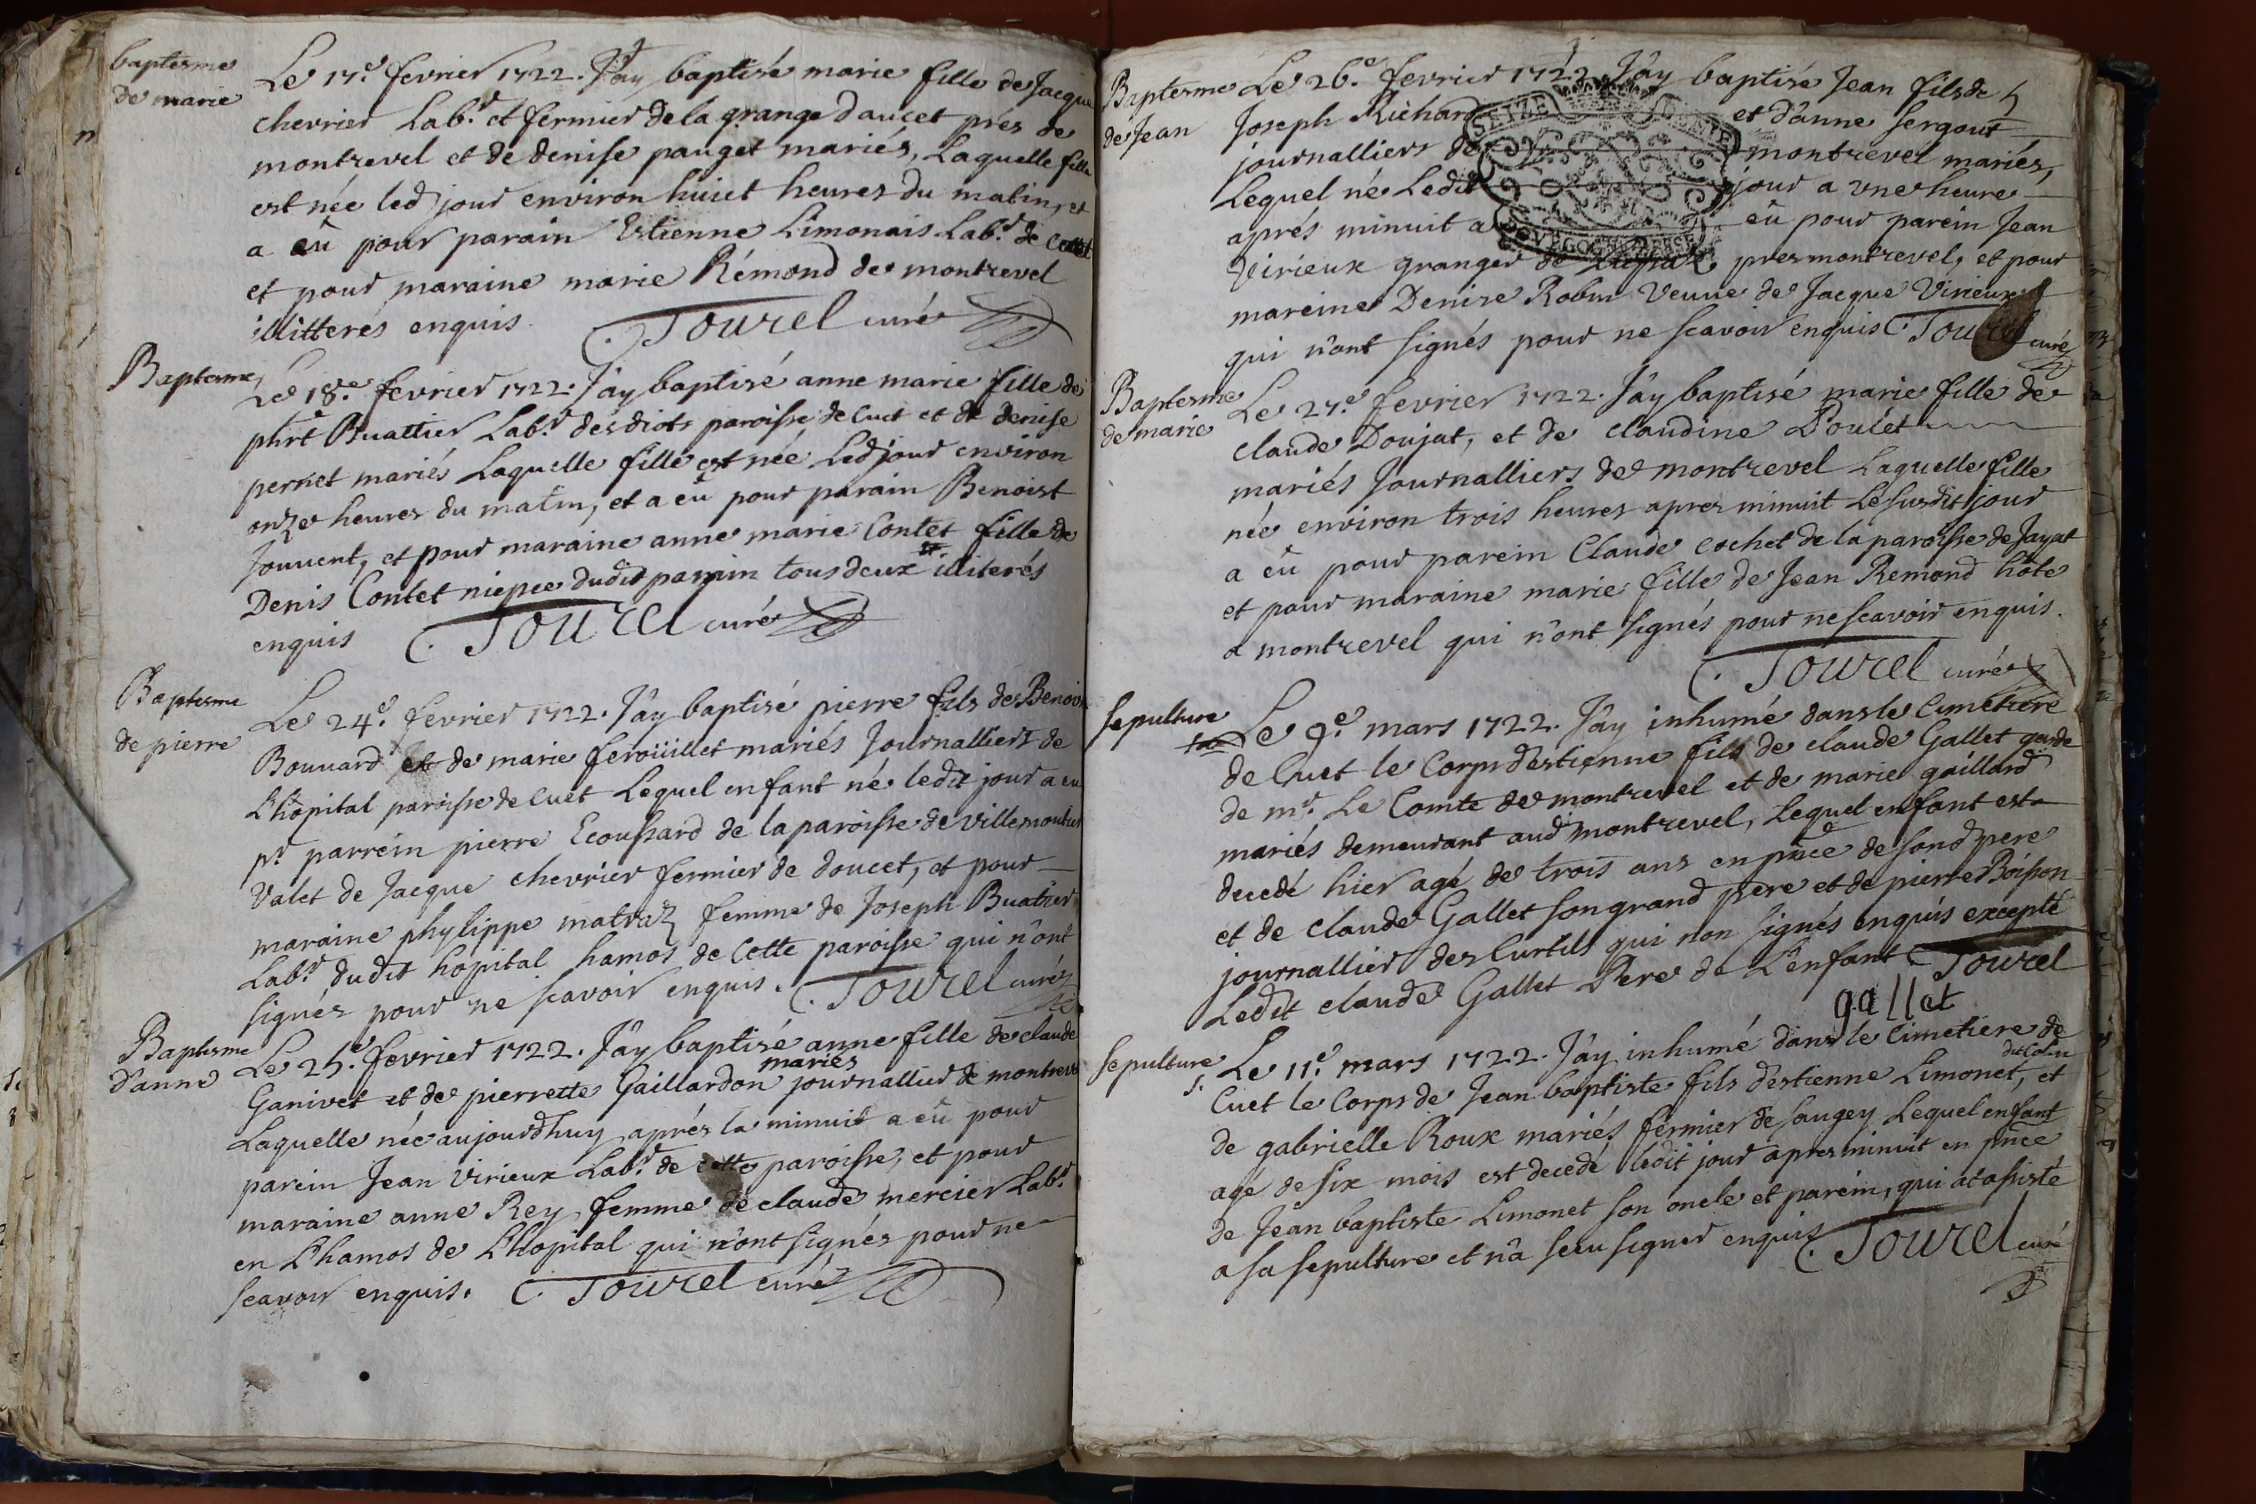 baptesme
de marie
Le 17.e fevrier 1722. J'ay baptisé marie fille de Jacque
chevrier Lab.r et fermier de la grange daucet pres de
montrevel et de denise pauget mariés, Laquelle fille
est née led jour environ huict heures du matin, et
a eû pour parain Estienne Limonais Lab.r de Cuet
et pour maraine marie Rémond de montrevel
illitterés enquis. Tourel curé
Baptesme
Le 18.e fevrier 1722. J'ay baptisé anne marie fille de
phrt Buattier Lab.r des diots paroisse de Cuet et de denise
pernet mariés Laquelle fille est née Led jour environ
onze heures du matin, et a eû pour parain Benoist
Jouvent, et pour maraine anne marie Contet fille de
Denis Contet niepce dudit parain tous deux illiterés
enquis Tourel curé
Baptesme
de pierre
Le 24.e fevrier 1722. J'ay baptisé pierre fils de Benoi
Bouvard et de marie feroüillet mariés Journalliers de
L'hôpital paroisse de Cuet Lequel enfant né ledit jour a eu
pr parrein pierre Ecoussard de la paroisse de villemoutier
valet de Jacque chevrier fermier de doucet, et pour
maraine phylippe matraz femme de Joseph Buatier
Lab.r dudit hôpital hamos de Cette paroisse qui n'ont
signés pour ne scavoir enquis. Tourel curé
Baptesme
d'anne
Le 25.e fevrier 1722. J'ay baptisé anne fille de claude
mariés
Ganivet et de pierrette Gaillardon journallier de montrevel
Laquelle née aujourdhuy aprés la minuit a eû pour
parein Jean Virieux Lab.r de cette paroisse, et pour
maraine anne Rey femme de claude mercier Lab.r
en L'hamos de L'hopital qui n'ont signés pour ne
scavoir enquis. Tourel curé
Baptesme
de Jean
Le 26.e fevrier 1722 J'ay baptisé Jean fils de
Joseph Richard et d'anne Sergout
journalliers de montrevel mariés,
Lequel né Ledit jour a une heure
aprés minuit a eû pour parein Jean
Virieux granger de pres montrevel, et pour
mareine Denise Robin Veuve de Jacque Virieux
qui n'ont signés pour ne scavoir enquis Tourel curé
Baptesme
de marie
Le 27.e fevrier 1722. J'ay baptisé marie fille de
claude Doujat, et de claudine Poulét
mariés Journalliers de montrevel Laquelle fille
née environ trois heures apres minuit Le susdit jour
a eû pour parein Claude cochet de la paroisse de Jayat
et pour maraine marie fille de Jean Remond hôte
a montrevel qui n'ont signés pour ne scavoir enquis.
Tourel curé
Sepulture
Le 9.e mars 1722. J'ay inhumé dans le Cimetiere
de Cuet le Corps d'estienne fils de claude Gallet garde
de m.r Le Comte de montrevel et de marie gaillard
mariés demeurant aud montrevel, Lequel enfant est
decedé hier agé de trois ans en pñce de sond pere
et de claude Gallet son grand pere et de pierre Boisson
journallier des Curtils qui non signés enquis excepté
Ledit claude Gallet Pere de L'enfant Tourel
gallet
Sepulture
Le 11.e mars 1722. J'ay inhumé dans le Cimetiere de
Cuet le Corps de Jean baptiste fils d'estienne Limonet, et
de gabrielle Roux mariés fermier de saugey Lequel enfant
agé de six mois est decedé ledit jour apres minuit en pñce
de Jean baptiste Limonet son oncle et parein, qui at assisté
a sa sepulture et n'a sceu signer enquis Tourel curé